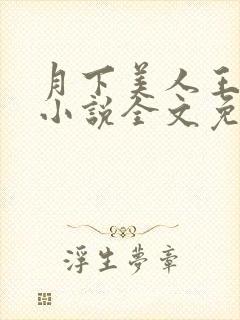 月下美人王
小說全文免
浮生夢章